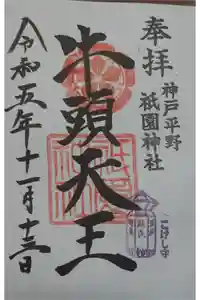 奉拝
神戸平野
祇園神社
牛頭天王
令和五年十一月十三日